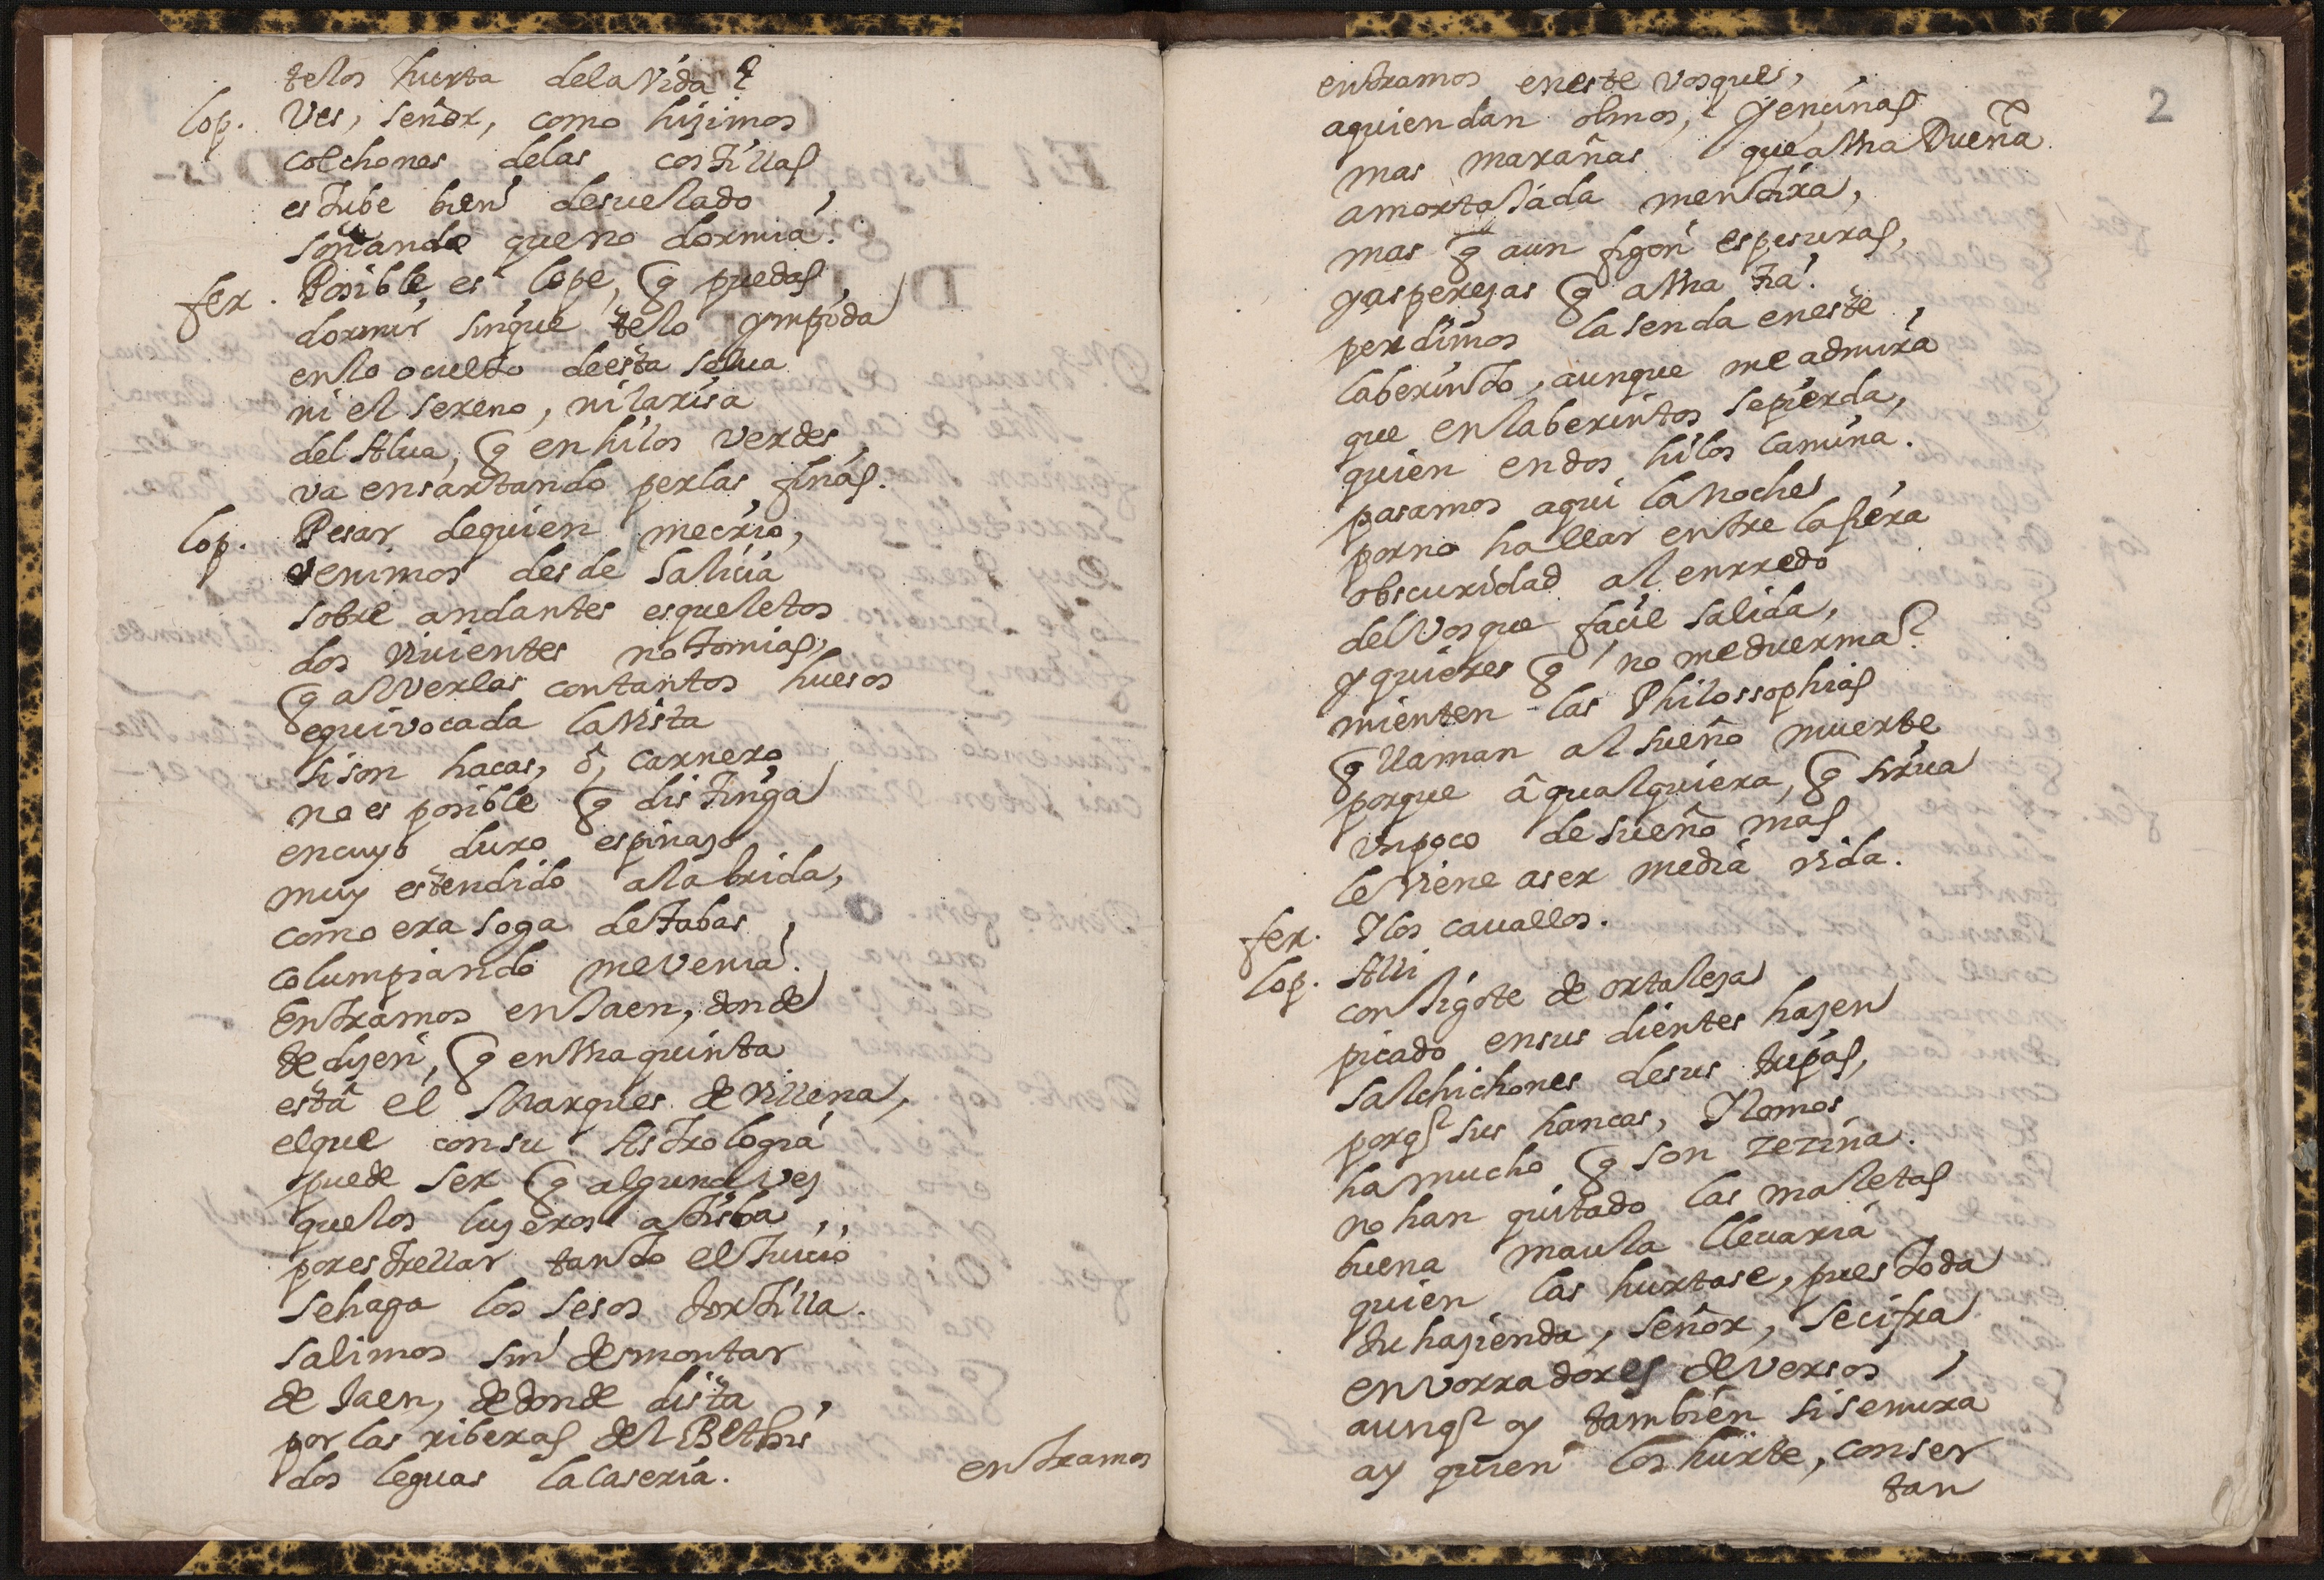 telos hurta delaVida?
Lop. Ves, señor, como hizimos
colchones delas costillas
estube bien desuelado,
soñando queno dormia.
fer. Posible es lope, q puedas,
dormir sinque telo ympida
enlo oculto deesta selua
ni el sereno, nilarisa
del Alua, q enhilos verdes,
va ensartando perlas finas.
Lop. Pesar dequien mecrio,
venimos desde Galicia
sobre andantes esqueletos
dos vivientes notomias,
q alverlas contantos huesos
equivocada laVista
si son hacas, ô, carnero
no es posible q distinga
encuyo duro espinazo
muy estendido alabrida,
como era soga detabas,
columpiando mevenia.
Entramos enJaen, donde
dedizen, q enVna quinta
està el Marques de Villena,
elque consu Astrologia
puede ser q alguna vez
quelos luzeros atisba,,
porestrellar tanto elJuicio
sehaga los sesos tortilla.
salimos sin desmontar
de Jaen, dedonde dista,
por las riberas del Bethis
dos leguas lacaseria.
entramos
2
entramos eneste vosque,,
aquiendan olmos, yencinas
mas marañas queaVna Dueña
amortajada mentira,
mas q aun figon espesuras,
yasperezas q aVna tia.
perdimos lasenda eneste,
laberinto, aunque me admira
que enlaberintos sepierda,
quien endos hilos camina.
pasamos aqui lanoche,
porno hallar entre lafiera
obscuridad al enrredo
delVosque facil salida,
yquieres q no meduerma?
mienten las Philossophias
q llaman alsueño muerte
porque â qualquiera, q sirua
vnpoco desueño mas
leViene aser media vida.
fer. Ylos cauallos.
Lop. Alli
conJigote de ortaleza
picado ensus dientes hazen
salchichones desus tripas,
porq sus hancas, Ylomos
hamucho q son zezina.
no han quitado las maletas
buena maula lleuaria
quien las hurtase, pues toda
tuhazienda, señor, secifra
envorradores deversos,
aunq oy tambien sisemira
ay quien los hurte, conser
tan